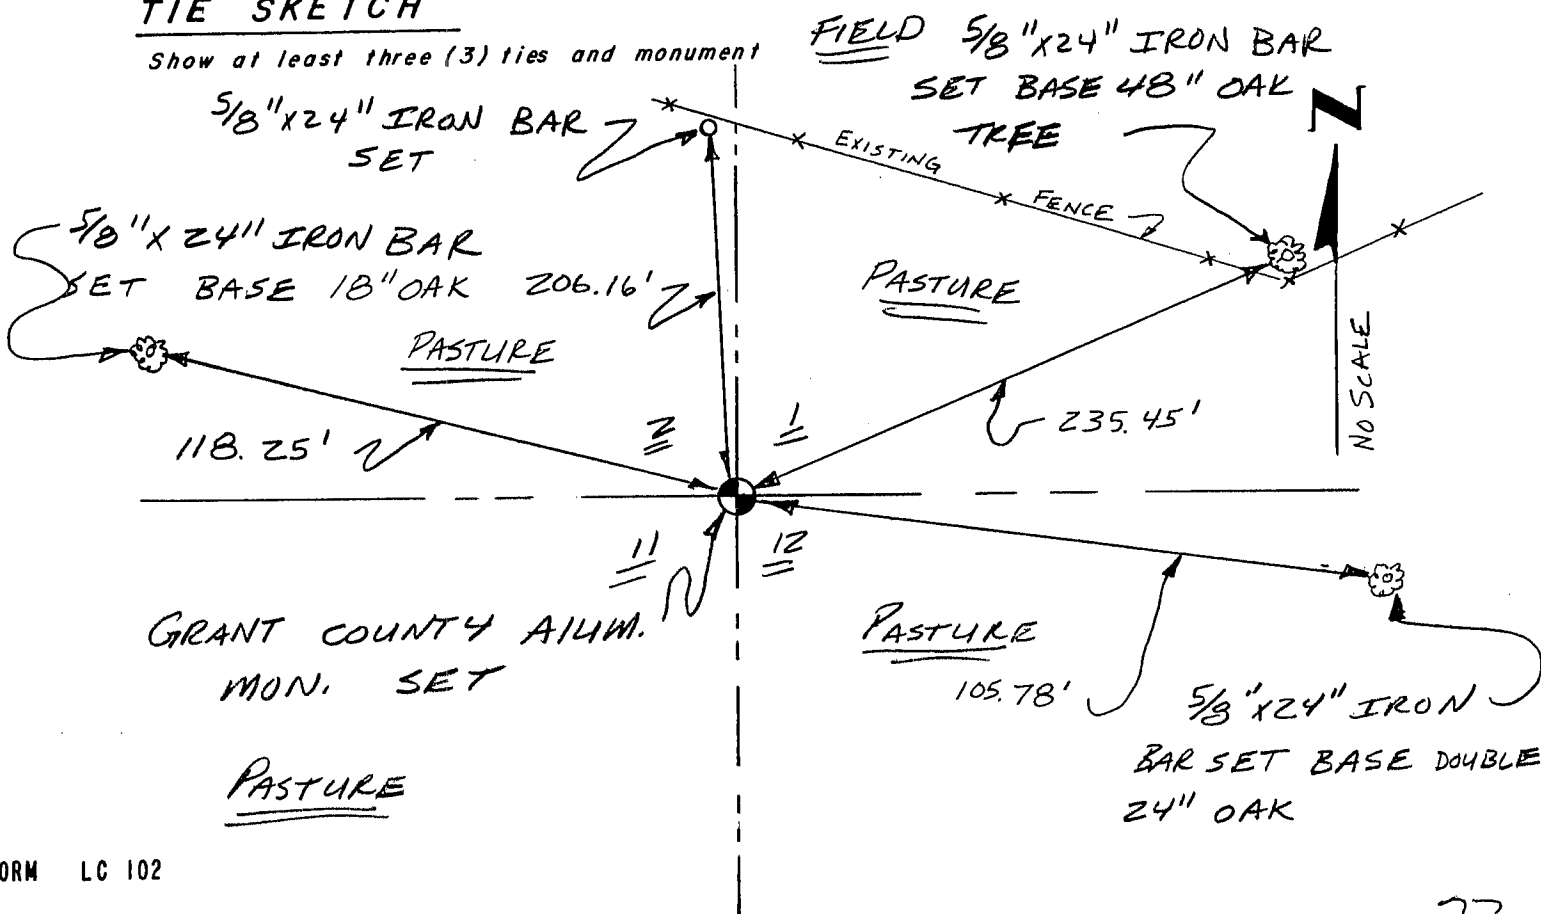 TIE SKETCH
Show at least three (3) ties and monument
FIELD
5/8"x24" IRON BAR
SET BASE 48" OAK
TREE
5/8"x24" IRON BAR
SET
EXISTING
FENCE
N
5/8"x24" IRON BAR
SET BASE 18" OAK
206.16'
PASTURE
PASTURE
NO SCALE
118.25'
2
1
235.45'
11
12
GRANT COUNTY ALUM.
MON. SET
PASTURE
105.78'
5/8"x24" IRON
BAR SET BASE DOUBLE
24" OAK
PASTURE
ORM LC 102